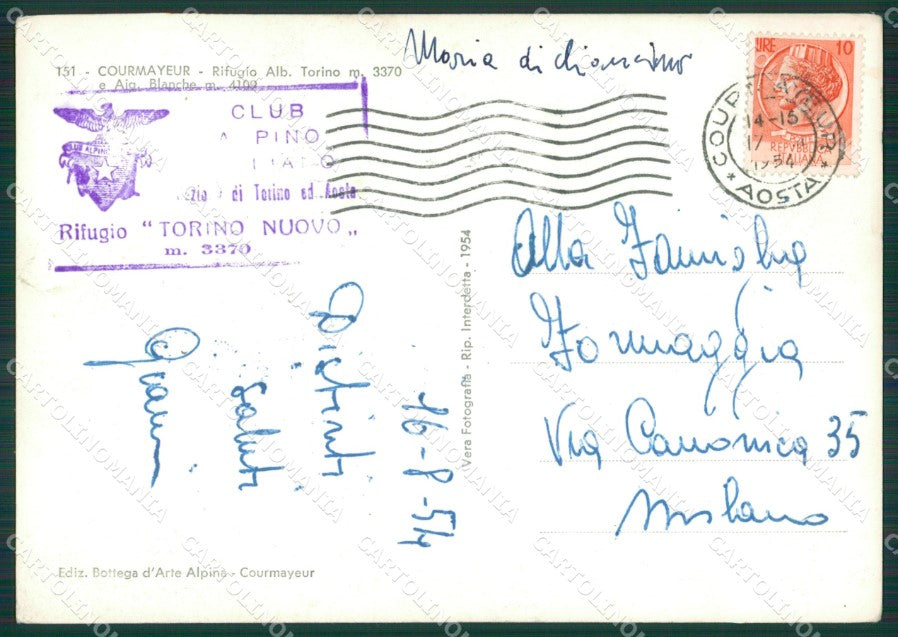 151 - COURMAYEUR - Rifugio Alb. Torino m. 3370
e Aig. Blanche m. 4109
Maria di
LIRE 10
REPUBBLICA
ITALIANA
COURMAYEUR
14-15
17
1954
* AOSTA *
CLUB
ALPINO
CLUB ALPINO
di Torino ed Aosta
Rifugio "TORINO NUOVO"
m. 3370
Alla Famiglia
Formaggia
Via Canonica 35
Milano
16-8-54
Distinti
Saluti
Vera Fotografia - Rip. Interdetta - 1954
Ediz. Bottega d'Arte Alpina - Courmayeur
CARTOLINOMANIA